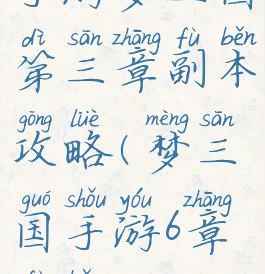 dì sān zhāng fù běn
第三章副本
gōng lüè mèng sān
攻略(梦三
guó shǒu yóu zhāng
国手游6章